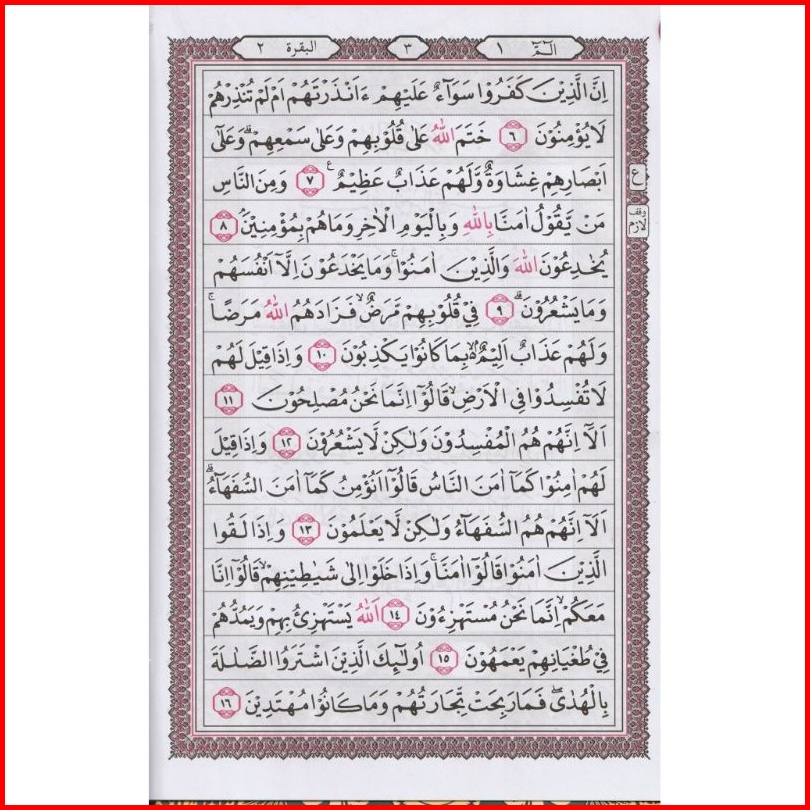 الٓمّٓ ١
٣
البقرة ٢
اِنَّ الَّذِيْنَ كَفَرُوْا سَوَآءٌ عَلَيْهِمْ ءَاَنْذَرْتَهُمْ اَمْ لَمْ تُنْذِرْهُمْ
لَا يُؤْمِنُوْنَ ٦ خَتَمَ اللّٰهُ عَلٰى قُلُوْبِهِمْ وَعَلٰى سَمْعِهِمْۗ وَعَلٰٓى
اَبْصَارِهِمْ غِشَاوَةٌ وَّلَهُمْ عَذَابٌ عَظِيْمٌ ࣖ ٧ وَمِنَ النَّاسِ
ع
مَنْ يَّقُوْلُ اٰمَنَّا بِاللّٰهِ وَبِالْيَوْمِ الْاٰخِرِ وَمَا هُمْ بِمُؤْمِنِيْنَۘ ٨
وقف لازم
يُخٰدِعُوْنَ اللّٰهَ وَالَّذِيْنَ اٰمَنُوْاۚ وَمَا يَخْدَعُوْنَ اِلَّآ اَنْفُسَهُمْ
وَمَا يَشْعُرُوْنَۗ ٩ فِيْ قُلُوْبِهِمْ مَّرَضٌۙ فَزَادَهُمُ اللّٰهُ مَرَضًاۚ
وَلَهُمْ عَذَابٌ اَلِيْمٌ ۢ ەۙ بِمَا كَانُوْا يَكْذِبُوْنَ ١٠ وَاِذَا قِيْلَ لَهُمْ
لَا تُفْسِدُوْا فِى الْاَرْضِۙ قَالُوْٓا اِنَّمَا نَحْنُ مُصْلِحُوْنَ ١١
اَلَآ اِنَّهُمْ هُمُ الْمُفْسِدُوْنَ وَلٰكِنْ لَّا يَشْعُرُوْنَ ١٢ وَاِذَا قِيْلَ
لَهُمْ اٰمِنُوْا كَمَآ اٰمَنَ النَّاسُ قَالُوْٓا اَنُؤْمِنُ كَمَآ اٰمَنَ السُّفَهَاۤءُۗ
اَلَآ اِنَّهُمْ هُمُ السُّفَهَاۤءُ وَلٰكِنْ لَّا يَعْلَمُوْنَ ١٣ وَاِذَا لَقُوا
الَّذِيْنَ اٰمَنُوْا قَالُوْٓا اٰمَنَّاۚ وَاِذَا خَلَوْا اِلٰى شَيٰطِيْنِهِمْۙ قَالُوْٓا اِنَّا
مَعَكُمْۙ اِنَّمَا نَحْنُ مُسْتَهْزِءُوْنَ ١٤ اَللّٰهُ يَسْتَهْزِئُ بِهِمْ وَيَمُدُّهُمْ
فِيْ طُغْيَانِهِمْ يَعْمَهُوْنَ ١٥ اُولٰۤىِٕكَ الَّذِيْنَ اشْتَرَوُا الضَّلٰلَةَ
بِالْهُدٰىۖ فَمَا رَبِحَتْ تِّجَارَتُهُمْ وَمَا كَانُوْا مُهْتَدِيْنَ ١٦